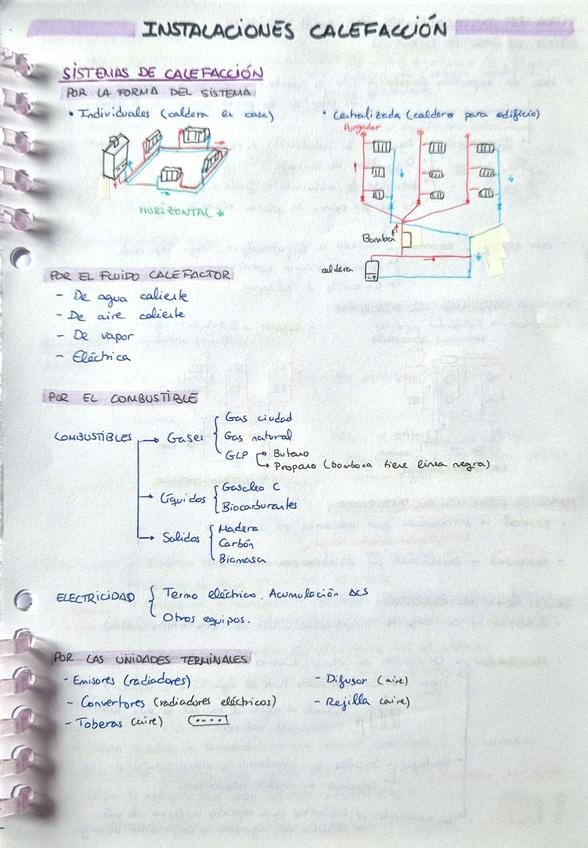 INSTALACIONES CALEFACCIÓN
SISTEMAS DE CALEFACCIÓN
POR LA FORMA DEL SISTEMA
• Individuales (caldera en casa)
HORIZONTAL
• Centralizada (caldera para edificio)
Purgador
Bomba
caldera
POR EL FLUIDO CALEFACTOR
- De agua caliente
- De aire caliente
- De vapor
- Eléctrica
POR EL COMBUSTIBLE
COMBUSTIBLES → Gases { Gas ciudad
Gas natural
GLP → Butano
→ Propano (bombona tiene línea negra)
→ Líquidos { Gasoleo C
Biocarburantes
→ Solidos { Madera
Carbón
Biomasa
ELECTRICIDAD { Termo eléctrico. Acumulación ACS
Otros equipos.
POR LAS UNIDADES TERMINALES
- Emisores (radiadores)
- Convertores (radiadores eléctricos)
- Toberas (aire)
- Difusor (aire)
- Rejilla (aire)